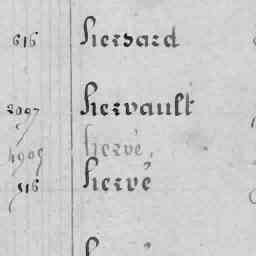 616 Hersard
2097 Hervault
4909 Hervé,
516 Hervé